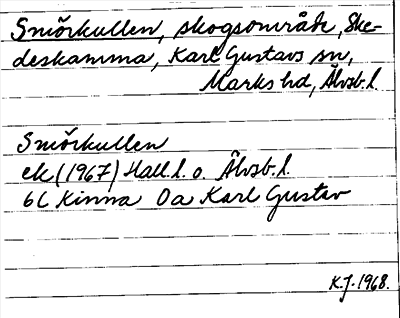 Smörkullen, skogsområde, Ske-
deskamma, Karl Gustavs sn,
Marks hd, Älvsb.l.
Smörkullen
ek (1967) Hall.l. o. Älvsb.l.
6C Kinna 0a Karl Gustav
K.J. 1968.